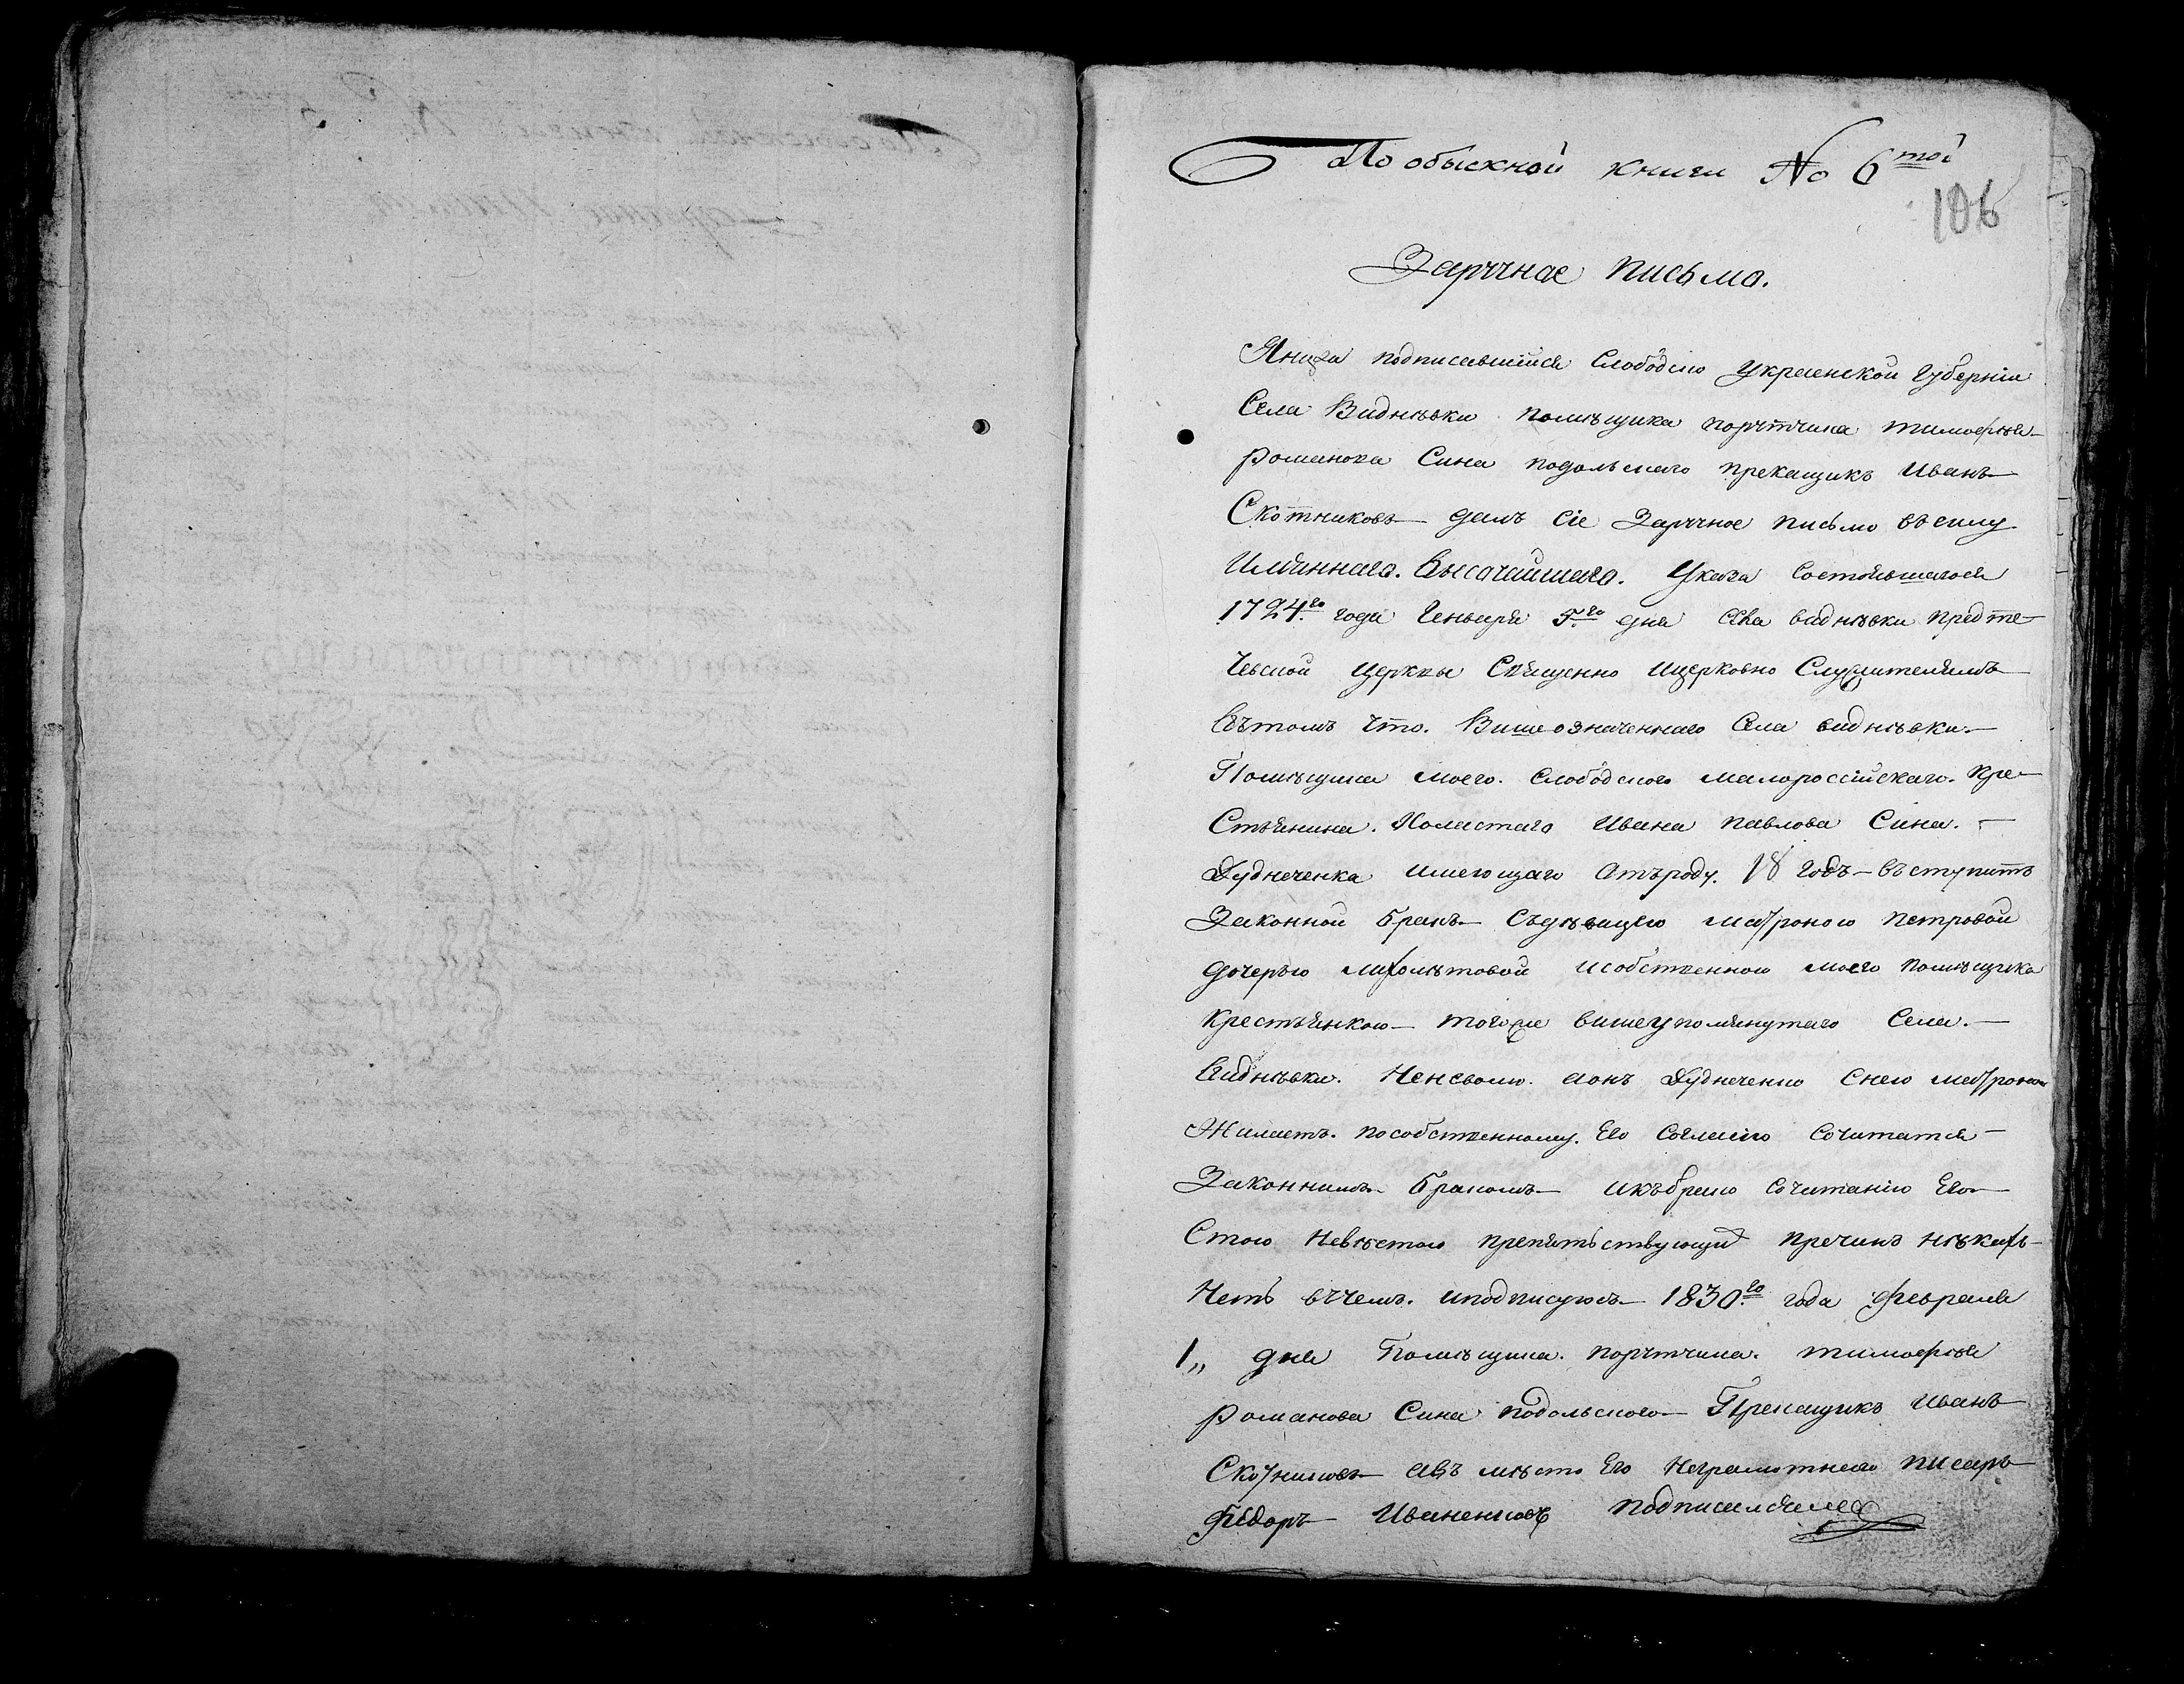 По обыскной книги № 6той
106
Заручное письмо.
Янижа подписавшийся Слободско Украенской Губерніи
Села Виднѣвки помѣщика порутчика тимофея
романова Сина подольскаго прекащикъ Иванъ
Скотниковъ далъ сіе Заручное письмо всилу
Имяннаго. Высочайшаго. Указа Состоявшагося
1724го года Генваря 5го дня Села виднѣвки предте-
чевской церквы Священно ицерковно Служителямъ
Вътомъ что. Вишеозначеннаго Села виднѣвки.
Помѣщика моего. Слободского малороссійскаго. кре-
Стьянина. Холастаго Ивана павлова Сина.
Дудкеченка имеющаго Отъроду. 18 годъ вступитъ
Законной бракъ Съдѣвицею матроною петровой
дочерью исобственною моего помѣщика
крестьянкою тогоже вишеупомянутаго Села.
Виднѣвки. аонъ Снею матроною
Жилаетъ. пособственному. Его Согласию Сочитатся
Законнимъ бракомъ икъбрако Сочитанію Его
Стою невѣстою препятьствующих пречинъ нѣкихъ
Нетъ въчемъ. иподписуюсь 1830го года февраля
1„ дня Помѣщика. порутчика. тимофея
романова Сина подольского Прекащикъ Иванъ
Скотниковъ авъ мѣсто Его Неграмотнаго писарь
федоръ Иваненковъ подписался